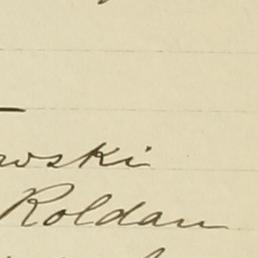 wski
Roldan